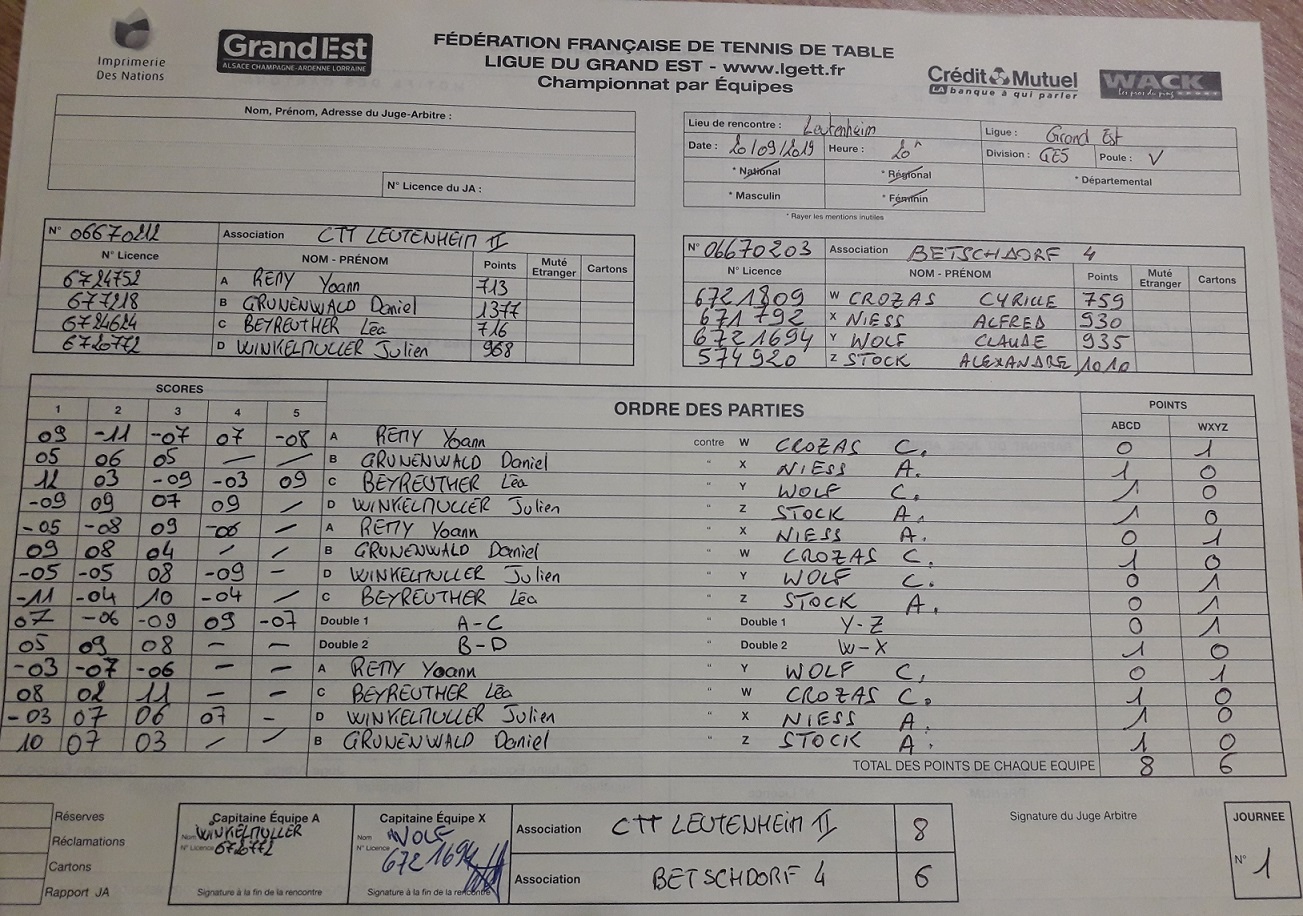 Imprimerie
Des Nations
GrandEst
ALSACE CHAMPAGNE-ARDENNE LORRAINE
FÉDÉRATION FRANÇAISE DE TENNIS DE TABLE
LIGUE DU GRAND EST - www.lgett.fr
Championnat par Équipes
Crédit Mutuel
LA banque à qui parler
WACK
Nom, Prénom, Adresse du Juge-Arbitre :
N° Licence du JA :
Lieu de rencontre : Leutenheim
Ligue : Grand Est
Date : 20/09/2019 Heure : 20h
Division : GE5 Poule : V
* National * Régional * Départemental
* Masculin * Féminin
* Rayer les mentions inutiles
N° 06670212 Association CTT LEUTENHEIM II
N° Licence NOM - PRÉNOM Points Muté Etranger Cartons
6724752 A REMY Yoann 713
677218 B GRUNENWALD Daniel 1377
6724624 C BEYREUTHER Léa 716
6720772 D WINKELMULLER Julien 968
N° 06670203 Association BETSCHDORF 4
N° Licence NOM - PRÉNOM Points Muté Etranger Cartons
6721809 W CROZAS CYRILLE 759
671792 X NIESS ALFRED 930
6721694 Y WOLF CLAUDE 935
574920 Z STOCK ALEXANDRE 1010
SCORES ORDRE DES PARTIES POINTS
1 2 3 4 5 ABCD WXYZ
09 -11 -07 07 -08 A REMY Yoann contre W CROZAS C. 0 1
05 06 05 — — B GRUNENWALD Daniel " X NIESS A. 1 0
12 03 -09 -03 09 C BEYREUTHER Léa " Y WOLF C. 1 0
-09 09 07 09 — D WINKELMULLER Julien " Z STOCK A. 1 0
-05 -08 09 -06 — A REMY Yoann " X NIESS A. 0 1
09 08 04 - - B GRUNENWALD Daniel " W CROZAS C. 1 0
-05 -05 08 -09 - D WINKELMULLER Julien " Y WOLF C. 0 1
-11 -04 10 -04 — C BEYREUTHER Léa " Z STOCK A. 0 1
07 -06 -09 09 -07 Double 1 A-C " Double 1 Y-Z 0 1
05 09 08 - - Double 2 B-D " Double 2 W-X 1 0
-03 -07 -06 - - A REMY Yoann " Y WOLF C. 0 1
08 02 11 - - C BEYREUTHER Léa " W CROZAS C. 1 0
-03 07 06 07 - D WINKELMULLER Julien " X NIESS A. 1 0
10 07 03 - - B GRUNENWALD Daniel " Z STOCK A. 1 0
TOTAL DES POINTS DE CHAQUE EQUIPE 8 6
Réserves
Réclamations
Cartons
Rapport JA
Capitaine Équipe A
Nom WINKELMULLER
N° Licence 6720772
Signature à la fin de la rencontre
Capitaine Équipe X
Nom WOLF
N° Licence 6721694
Signature à la fin de la rencontre
Association CTT LEUTENHEIM II 8
Association BETSCHDORF 4 6
Signature du Juge Arbitre
JOURNEE
N° 1